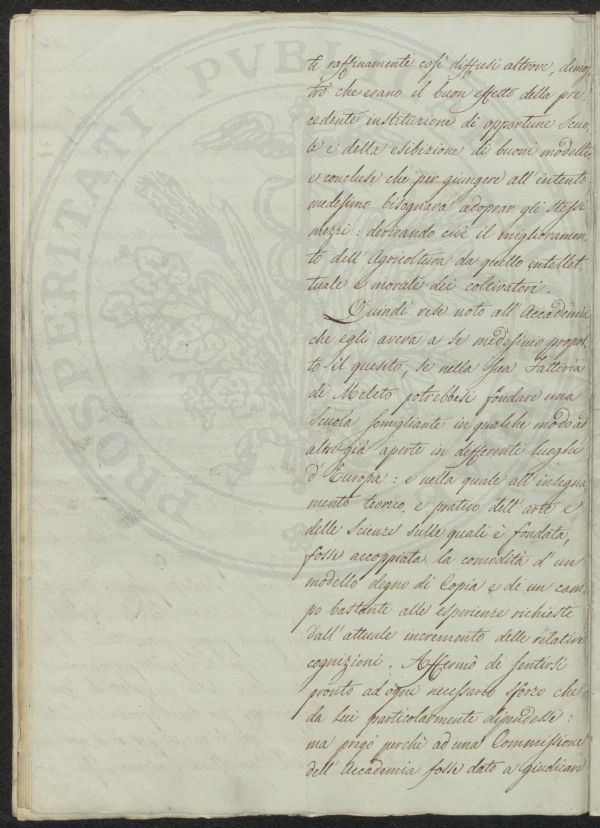 ti raffinamenti così diffusi altrove, dimos
trò che erano il buon effetto della pre
cedente instituzione di opportune scuo
le e della esibizione di buoni modelli,
e concluse che per giungere all'intento
medesimo bisognava adoprar gli stessi
mezzi: derivando cioè il miglioramen
to dell'Agricoltura da quello intellet
tuale e morale dei coltivatori.
Quindi rese noto all'Accademia
che egli aveva a se medesimo propos
to il quesito, se nella sua Fattoria
di Meleto potrebbesi fondare una
Scuola somigliante in qualche modo a
altre già aperte in differenti luoghi
d'Europa: e nella quale all'insegna
mento teorico, e pratico dell'arte e
delle scienze sulle quali è fondata,
fosse accoppiata la comodità d'un
modello degno di Copia e di un cam
po bastante alle esperienze richieste
dall'attuale incremento delle relative
cognizioni. Affermò di sentirsi
pronto ad ogni necessario sforzo che
da lui particolarmente dipendesse:
ma pregò perchè ad una Commissione
dell'Accademia fosse dato a giudicare
PROSPERITATI PUBLI